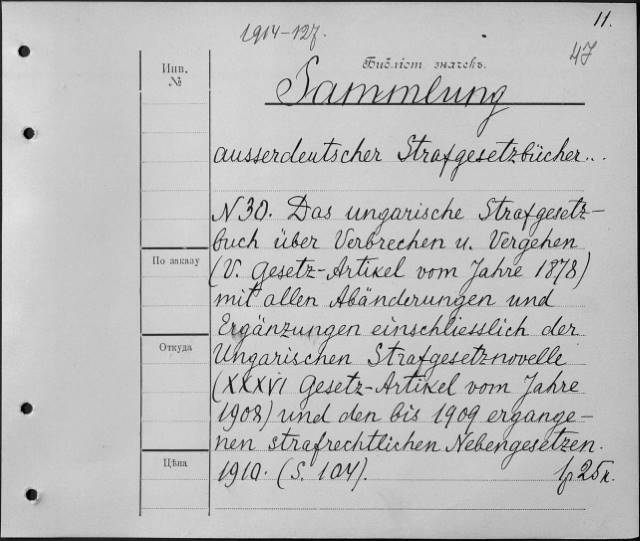 11.
1914-127.
47
Библіот значекъ.
Инв.
№
Sammlung
ausserdeutscher Strafgesetzbücher...
N 30. Das ungarische Strafgesetz-
buch über Verbrechen u. Vergehen
По заказу
(V. Gesetz-Artikel vom Jahre 1878)
mit allen Abänderungen und
Ergänzungen einschliesslich der
Откуда
Ungarischen Strafgesetznovelle
(XXXVI Gesetz-Artikel vom Jahre
1908) und den bis 1909 ergange-
nen strafrechtlichen Nebengesetzen.
Цѣна
1910. (S. 104). 25к.